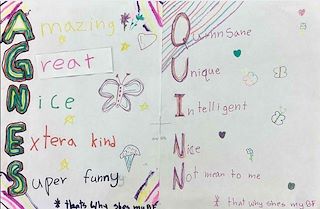 Amazing
Great
Nice
Extera kind
Super funny
* thats why shes my BF
Unique
Intelligent
Nice
Not mean to me
* that why shes my BF